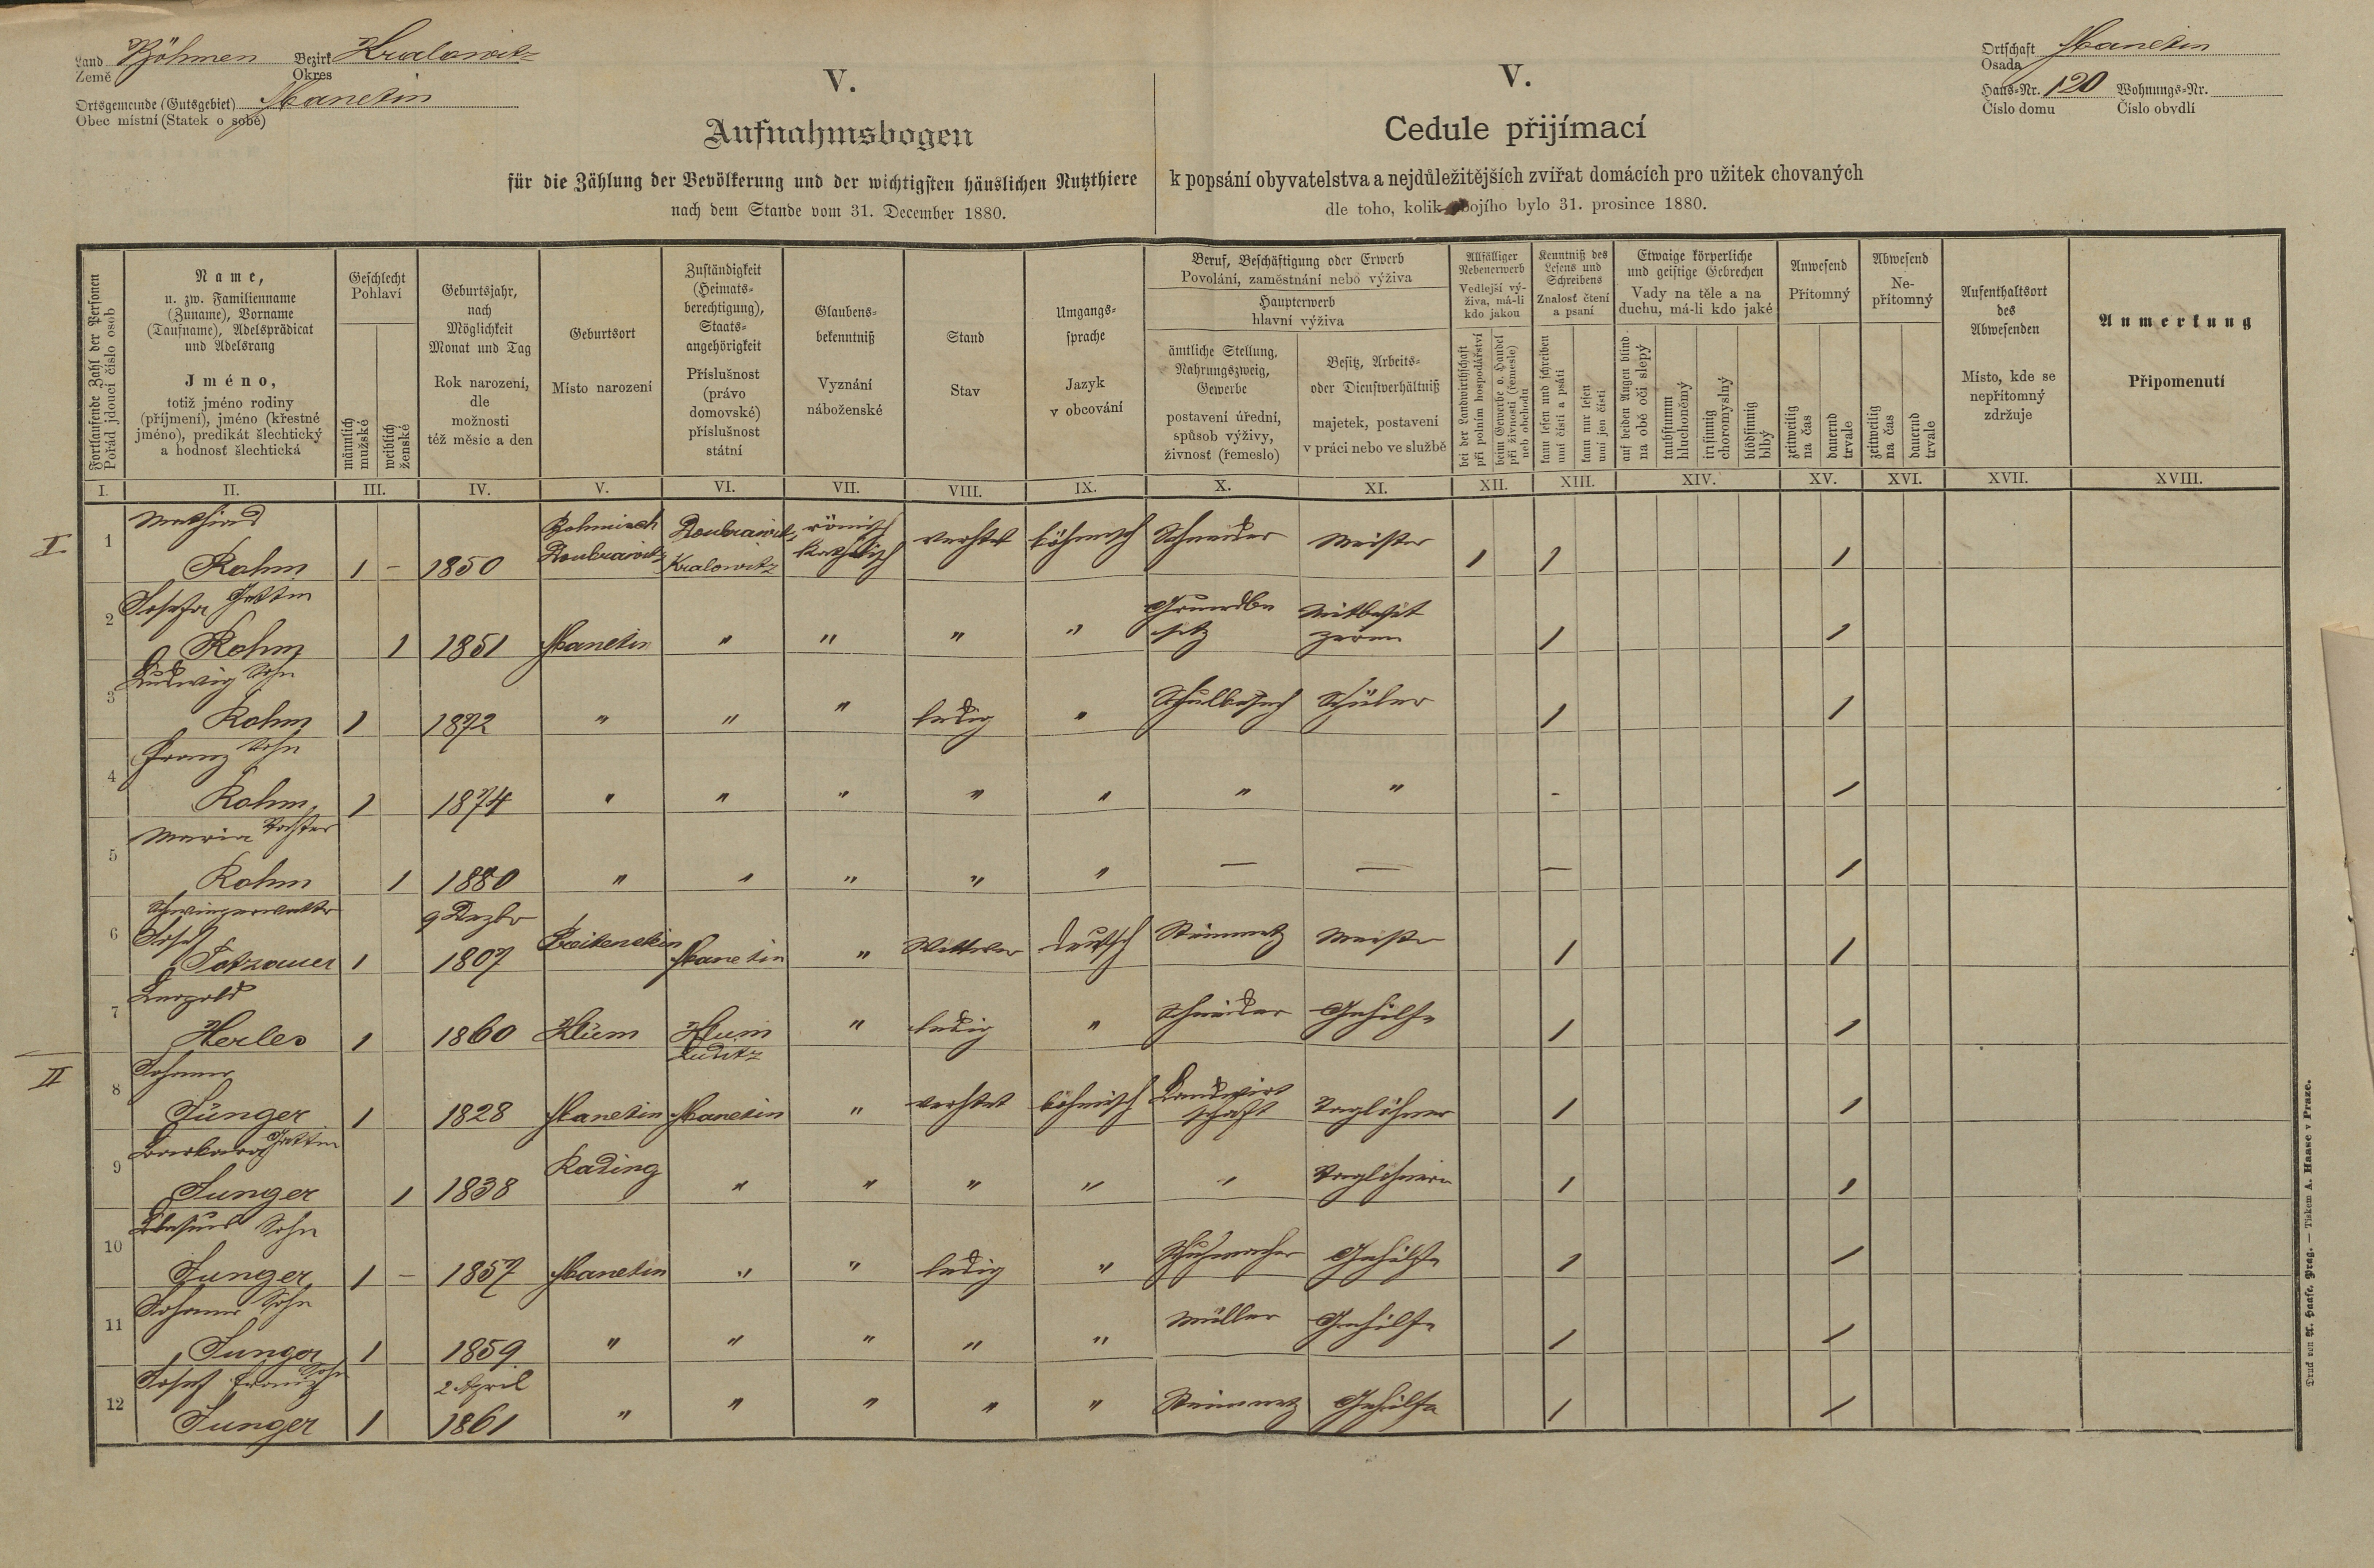 Land Böhmen Bezirk Kralowitz
Země Okres
Ortsgemeinde (Gutsgebiet) Manetin
Obec místní (Statek o sobě)
V.
Aufnahmsbogen
für die Zählung der Bevölkerung und der wichtigsten häuslichen Nutzthiere
nach dem Stande vom 31. December 1880.
V.
Cedule přijímací
k popsání obyvatelstva a nejdůležitějších zvířat domácích pro užitek chovaných
dle toho, kolik obojího bylo 31. prosince 1880.
Ortschaft Manetin
Osada
Haus-Nr. 120 Wohnungs-Nr.
Číslo domu Číslo obydlí
Fortlaufende Zahl der Personen
Pořád jdoucí číslo osob
Name,
u. zw. Familienname
(Zuname), Vorname
(Taufname), Adelsprädicat
und Adelsrang
Jméno,
totiž jméno rodiny
(příjmení), jméno (křestné
jméno), predikát šlechtický
a hodnosť šlechtická
Geschlecht
Pohlaví
männlich
mužské
weiblich
ženské
Geburtsjahr,
nach
Möglichkeit
Monat und Tag
Rok narození,
dle
možnosti
též měsíc a den
Geburtsort
Místo narození
Zuständigkeit
(Heimats-
berechtigung),
Staats-
angehörigkeit
Příslušnost
(právo
domovské)
příslušnost
státní
Glaubens-
bekenntniß
Vyznání
náboženské
Stand
Stav
Umgangs-
sprache
Jazyk
v obcování
Beruf, Beschäftigung oder Erwerb
Povolání, zaměstnání nebo výživa
Haupterwerb
hlavní výživa
ämtliche Stellung,
Nahrungszweig,
Gewerbe
postavení úřední,
spůsob výživy,
živnosť (řemeslo)
Besitz, Arbeits-
oder Dienstverhältniß
majetek, postavení
v práci nebo ve službě
Allfälliger
Nebenerwerb
Vedlejší vý-
živa, má-li
kdo jakou
bei der Landwirthschaft
při polním hospodářství
beim Gewerbe o. Handel
při živnosti (řemesle)
neb obchodu
Kenntniß des
Lesens und
Schreibens
Znalosť čtení
a psaní
kann lesen und schreiben
umí čísti a psáti
kann nur lesen
umí jen čísti
Etwaige körperliche
und geistige Gebrechen
Vady na těle a na
duchu, má-li kdo jaké
auf beiden Augen blind
na obě oči slepý
taubstumm
hluchoněmý
irrsinnig
choromyslný
blödsinnig
blbý
Anwesend
Přítomný
zeitweilig
na čas
dauernd
trvale
Abwesend
Ne-
přítomný
zeitweilig
na čas
dauernd
trvale
Aufenthaltsort
des
Abwesenden
Místo, kde se
nepřítomný
zdržuje
Anmerkung
Připomenutí
I. II. III. IV. V. VI. VII. VIII. IX. X. XI. XII. XIII. XIV. XV. XVI. XVII. XVIII.
I
1 Mathias
Rohm 1 - 1850 Böhmisch Doubrawitz Doubrawitz Kralowitz römisch katholisch verhet böhmisch Schneider Meister 1 1 1
2 Josefa Gattin
Rohm 1 1851 Manetin " " " " Grundbesitz Mitbesitzerin 1 1
3 Ludwig Sohn
Rohm 1 1872 " " " ledig " Schulbesuch Schüler 1 1
4 Franz Sohn
Rohm 1 1874 " " " " " " " - 1
5 Maria Tochter
Rohm 1 1880 " " " " " — — — 1
6 Schwiegervater
Josef 9 Dezbr
Totzauer 1 1807 Breitenstein Manetin " Wittwer deutsch Steinmetz Meister 1 1
7 Leopold
Herles 1 1860 Hlum Hlum Luditz " ledig " Schneider Gehilfe 1 1
II
8 Johann
Junger 1 1828 Manetin Manetin " verhet böhmisch Landwirtschaft Taglöhner 1 1
9 Barbara Gattin
Junger 1 1838 Rading " " " " " Taglöhnerin 1 1
10 Sohn
Junger 1 - 1857 Manetin " " ledig " Schuhmacher Gehilfe 1 1
11 Johann Sohn
Junger 1 1859 " " " " " Müller Gehilfe 1 1
12 Josef Franz Sohn 2 April
Junger 1 1861 " " " " " Steinmetz Gehilfe 1 1
Druck von A. Haase, Prag. — Tiskem A. Haase v Praze.